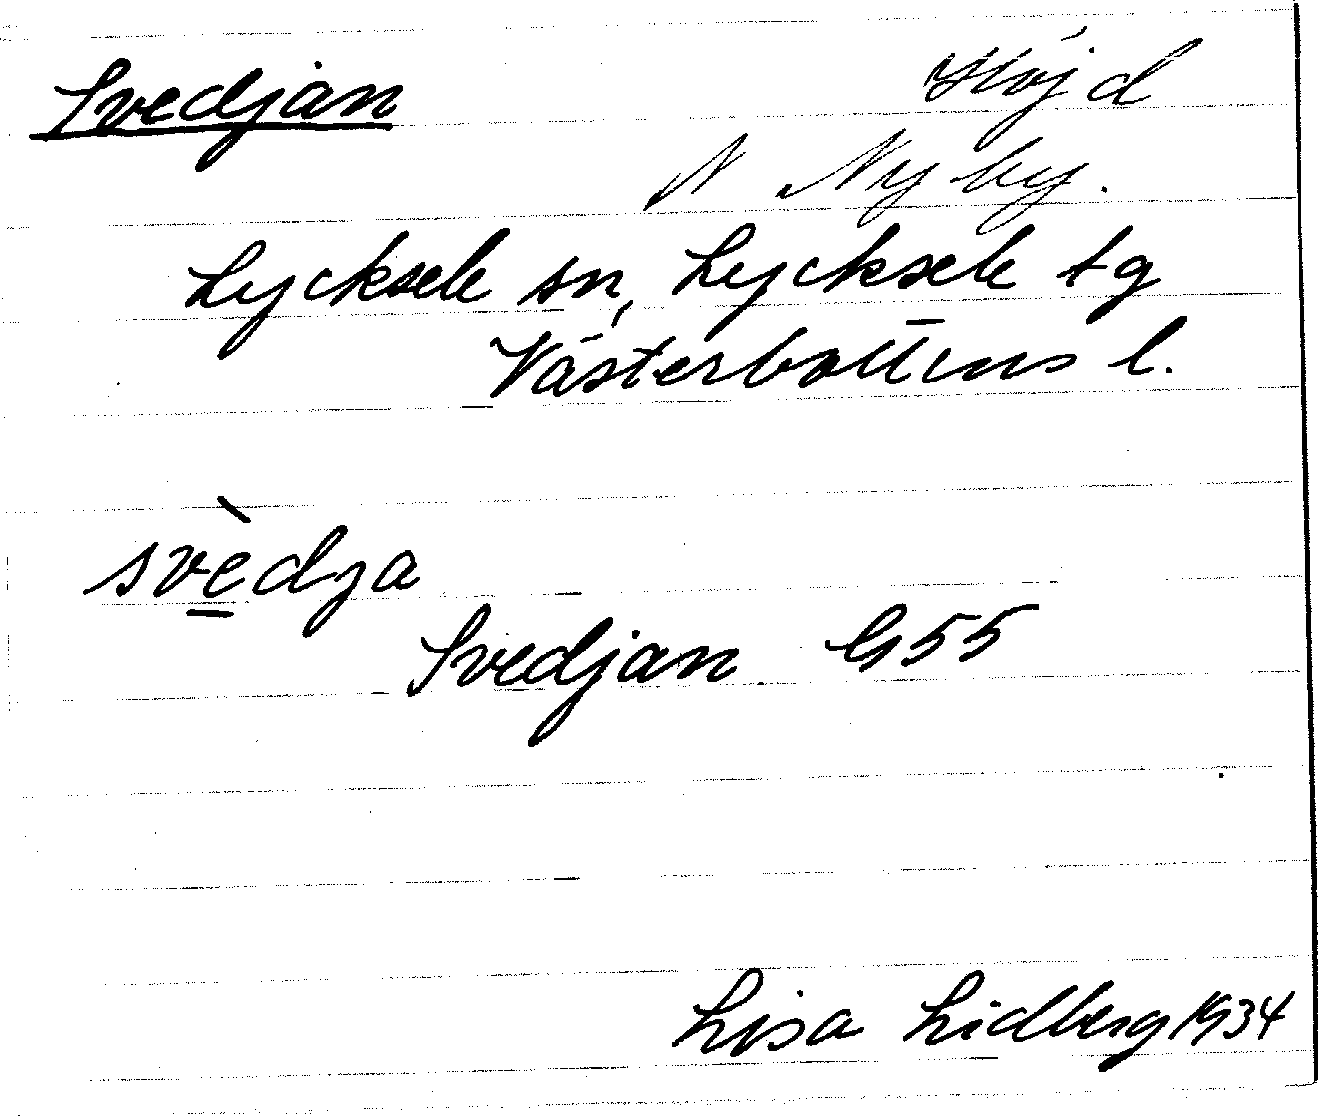 Svedjan Höjd
N Nyby.
Lycksele sn, Lycksele tg
Västerbottens l.
svèdja
Svedjan G55
Lisa Lidberg 1934